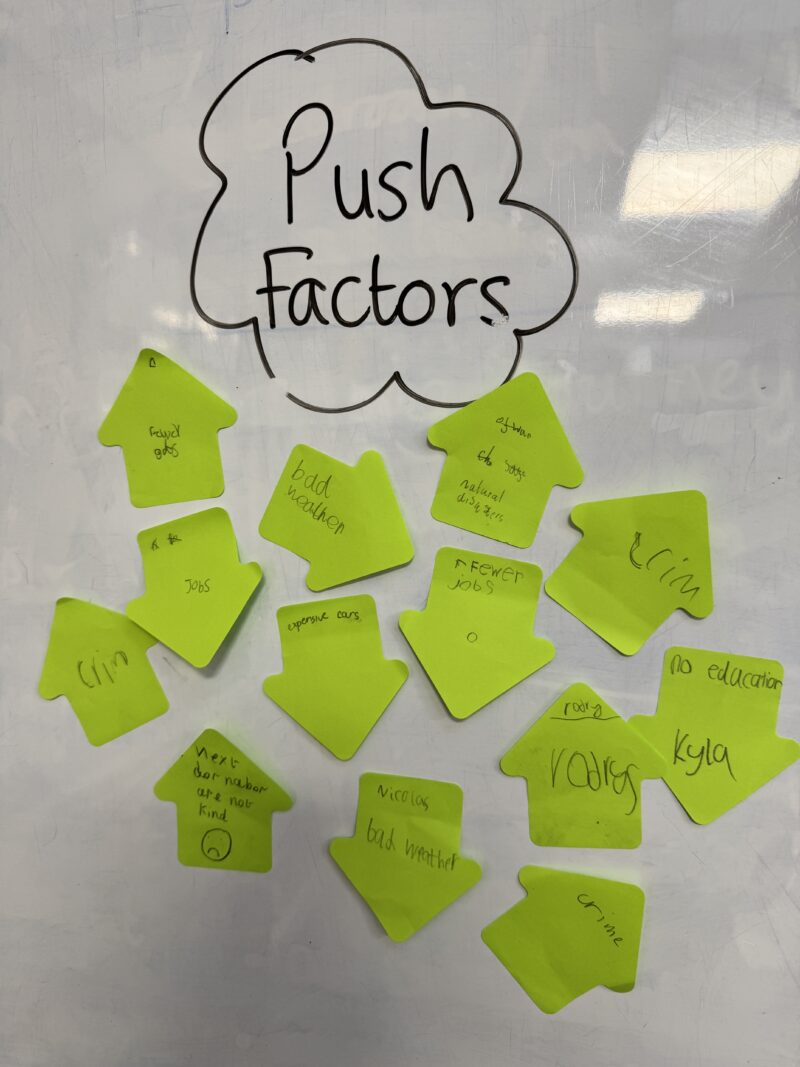 Push
Factors
bad
weather
natural
disasters
Jobs
Fewer
jobs
crim
crim
expensive cars
no education
Kyla
rodry
rodrys
next
dor nabor
are not
kind
Nicolas
bad weather
crime